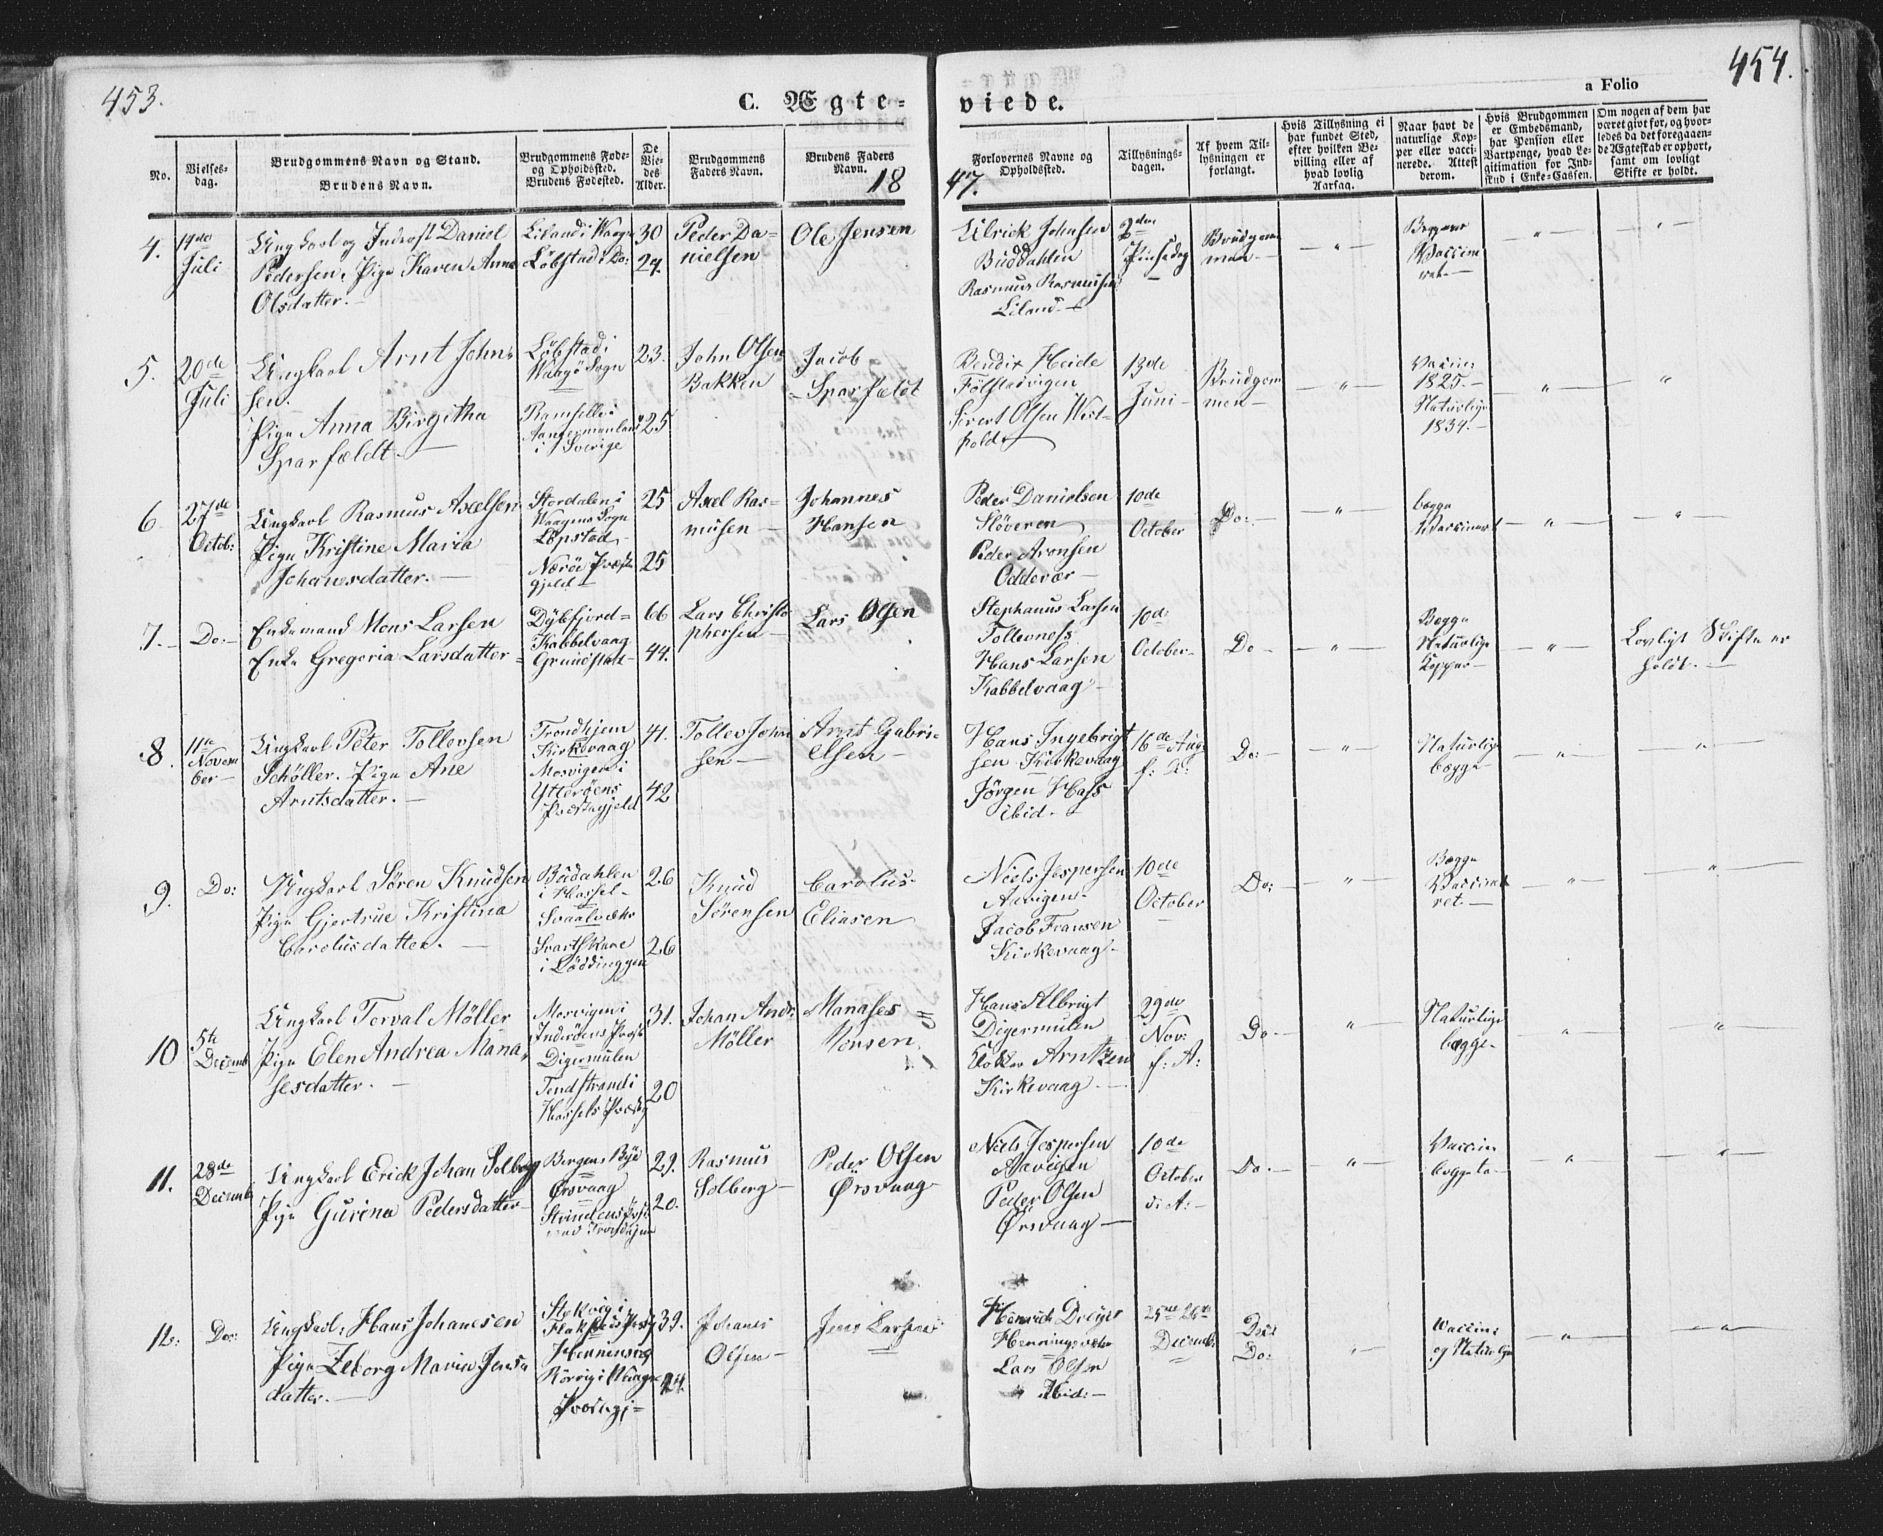 453.
C. Ægte-
viede.
a Folio
454.
No.
Vielses-
dag.
Brudgommens Navn og Stand.
Brudens Navn.
Brudgommens Føde-
og Opholdssted.
Brudens Fødested.
De
Vie-
des
Alder.
Brudgommens
Faders Navn.
Brudens Faders
Navn.
18
47.
Forlovernes Navne og
Opholdssted.
Tillysnings-
dagen.
Af hvem Til-
lysningen er
forlangt.
Hvis Tillysning ei
har fundet Sted,
efter hvilken Be-
villing eller af
hvad lovlig
Aarsag.
Naar havt de
naturlige Kop-
per eller vacci-
nerede. Attest
derom.
Hvis Brudgommen
er Embedsmand,
har Pension eller
Vartpenge, hvad Le-
gitimation for Ind-
skud i Enke-Cassen.
Om nogen af dem har
været gift før, og hvor-
ledes da det foregaaen-
de Ægteskab er ophørt,
samt om lovligt
Skifte er holdt.
4.
19de
Juli
Ungkarl og Inderst Daniel
Pedersen. Pige Karen Anna
Olsdatter.
Liland i Vaagn
Löbstad i Do:
30
29.
Peder Da-
nielsen
Ole Jensen
Ulrick Johnsen
Buddahlen
Rasmus Rasmussen
Liland
2den
Pintsedag
Brudgom-
men
Begge
Vaccine-
ret
5.
20de
Juli
Ungkarl Arnt John-
sen.
Pige Anna Birgitha
Sparfældt.
Löbstad i
Vaagö Sogn
Ramselle i
Aangermanland
i Sverige
23.
25
John Olsen
Bakken
Jacob
Sparfældt
Bendix Heide
Fölstadvigen
Sivert Olsen West-
pold
13de
Juni
Brudgom
men
Vaccine
1825.
Naturlige
1834.
6
27de
Octob:
Ungkarl Rasmus Axelsen
Pige Kristine Maria
Johanesdatter.
Stordalen i
Vaagens Sogn
Löpstad
Nærøe Præste
gjeld
25
25
Axel Ras-
musen
Johannes
Hansen
Peder Danielsen
Slöveren
Peder Aronsen
Oddevær
10de
October
Do:
begge
Vaccineret
7.
Do.
Enkemand Mons Larsen
Enke Gregoria Larsdatter
Dybfjord-
Kabbelvaag
Grundstad
66
44.
Lars Christo
phersen
Lars Olsen
Stephanus Larsen
Follesnæss
Hans Larsen
Kabbelvaag
10de
October
Do
Begge
Naturlige
Kopper
Lovligt Skifte er
holdt.
8.
11te
Novem
ber
Ungkarl Peter Tollevsen
Schöller. Pige Ane
Arntsdatter.
Trondhjem
Kirkevaag
Mosvigen i
Ytterøens
Præstegjeld
41.
42
Tollev John
sen
Arnt Gabri-
elsen
Hans Ingebrigt
sen Kirkevaag
Jörgen Hass
ibid.
16de Aug:
f: A:
Do:
Naturlige
begge
9.
Do:
Ungkarl Sören Knudsen
Pige Gjertrue Kristina
Carolusdatter.
Budahlen
i Hassel
Svartskare
i Löddinggen
26
26
Knud
Sörensen
Carolus
Eliasen
Niels Jespersen
Aavigen
Jacob Fransen
Kirkevaag
10de
October
Do:
Begge
Vaccine
ret.
10
5te
Decemb
Ungkarl Torval Möller
Pige Elen Andrea Mana-
sesdatter.
Mosvigen i
Inderöens Præst
Digermulen
Tendstrand i
Hassels Præstg
31.
20
Johan Andr.
Möller
Manases
Monsen
Hans Albrigt
Digermulen
Arntzen
Kirkevaag
29de
Nov:
f: A:
Do
Naturlige
begge.
11.
28de
Decemb
Ungkarl Erick Johan Solberg
Pige Gurina Pedersdatter
Bergens Bye
Örsvaag
Strindens Præst
ved Trondhjem
29.
20.
Rasmus
Solberg
Peder Olsen
Örsvaag
Niels Jespersen
Aavigen
Peder Olsen
Örsvaag
10de
October
d: A:
Do.
Vaccine
begge to
12.
Do:
Ungkarl Hans Johanesen
Pige Zeborg Maria Jens-
datter.
Stokvig i
Henningsvg
Rörvig i Vaagn
Præstegj
39.
24.
Johanes
Olsen
Jens Larsen
Henrich Dreyer
Henningsvær
Lars Olsen
Ibid:
25de 26de
Decemb:
Do:
Do:
Vaccine
og Naturlige